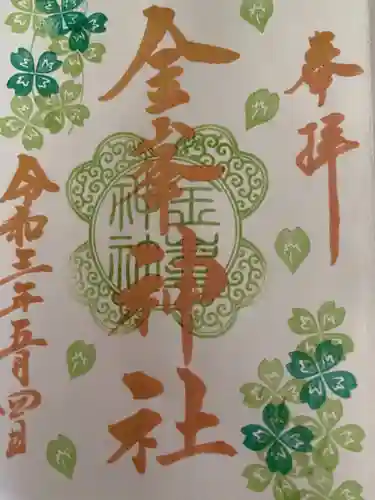 奉拝
金峯神社
金峯神社
令和三年五月四日